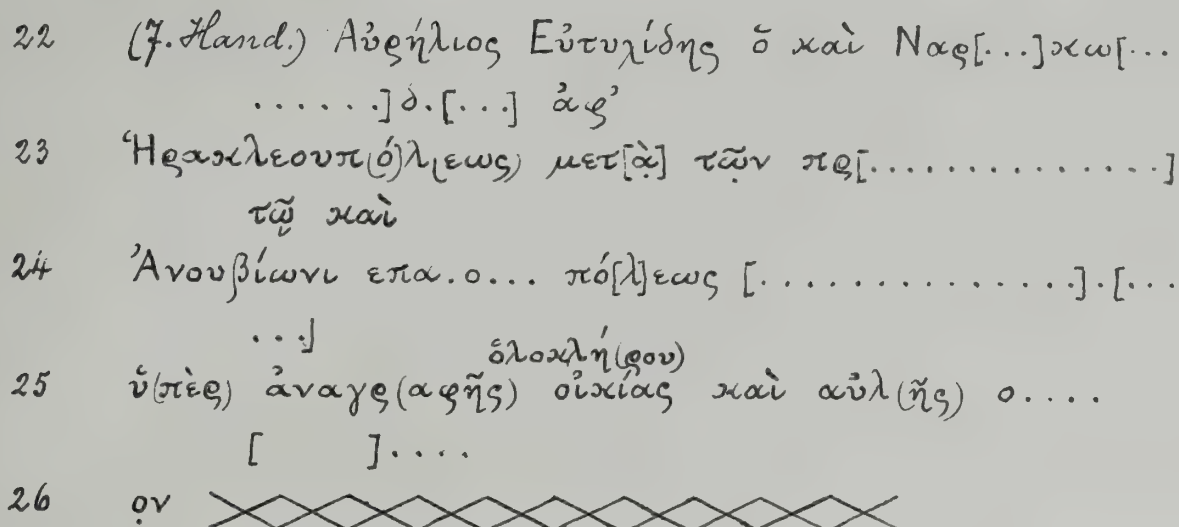 22 (7. Hand.) Αὐρήλιος Εὐτυχίδης ὁ καὶ Ναρ[...]κω[...
......]δ.[...] ἀφ’
23 Ἡρακλεουπ(ό)λ(εως) μετ[ὰ] τῶν πρ[..............]
τῷ καὶ
24 Ἀνουβίωνι επα.ο... πό[λ]εως [..............].[...
...]
ὁλοκλή(ρου)
25 ὑ(πὲρ) ἀναγρ(αφῆς) οἰκίας καὶ αὐλ(ῆς) ο....
[ ]....
26 ον